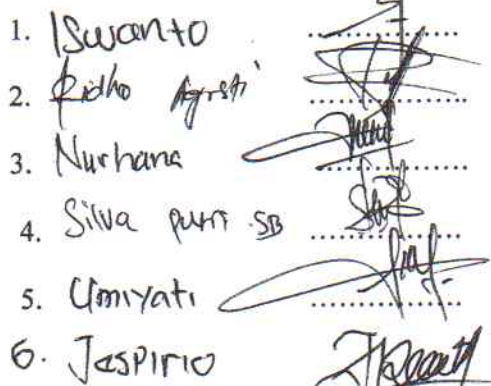 1. Iswanto
2. Ridho Agusti
3. Nurhana
4. Silva putri SB
5. Umiyati
6. Jaspirio